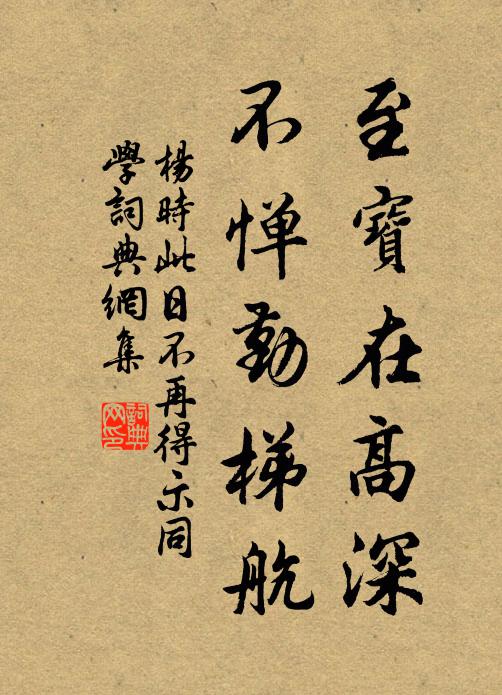 至寶在高深
不惮勤梯航
楊時此日不再得示同
學詞典網集
詞典
网印